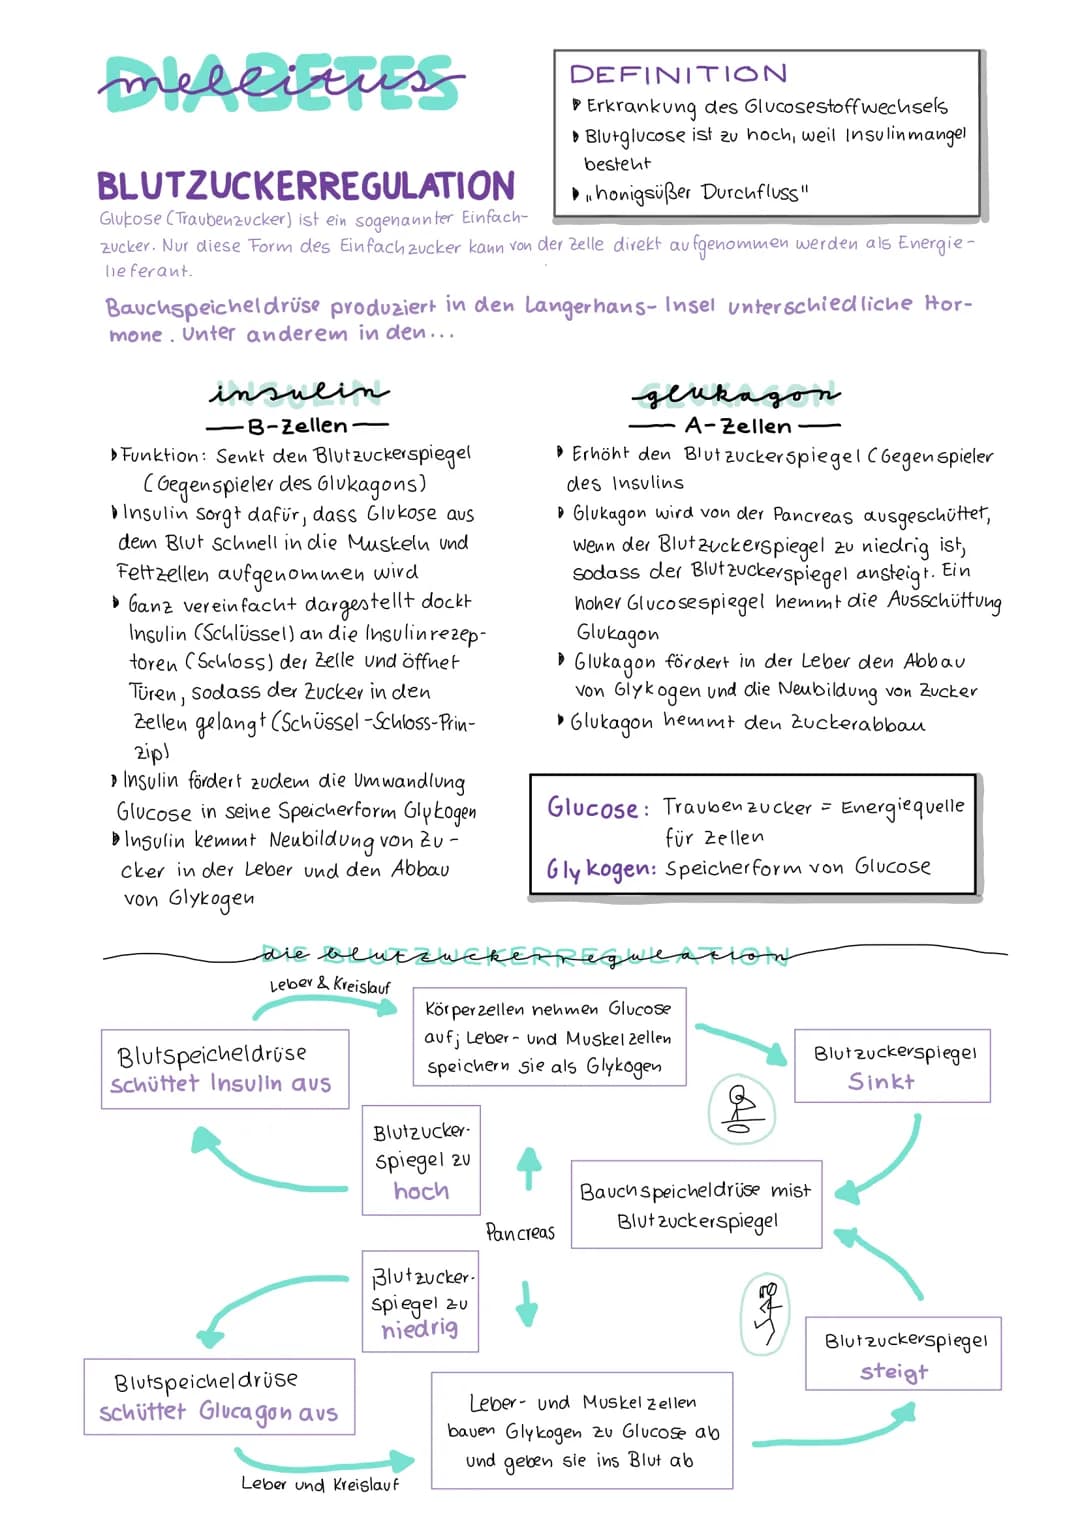 DIABETES
mellitus
DEFINITION
Erkrankung des Glucosestoffwechsels
Blutglucose ist zu hoch, weil Insulinmangel
besteht
„honigsüßer Durchfluss"
BLUTZUCKERREGULATION
Glukose (Traubenzucker) ist ein sogenannter Einfach-
zucker. Nur diese Form des Einfachzucker kann von der Zelle direkt aufgenommen werden als Energie-
lieferant.
Bauchspeicheldrüse produziert in den Langerhans-Insel unterschiedliche Hor-
mone. Unter anderem in den...
INSULIN
insulin
B-Zellen
Funktion: Senkt den Blutzuckerspiegel
(Gegenspieler des Glukagons)
Insulin sorgt dafür, dass Glukose aus
dem Blut schnell in die Muskeln und
Fettzellen aufgenommen wird
Ganz vereinfacht dargestellt dockt
Insulin (Schlüssel) an die Insulinrezep-
toren (Schloss) der Zelle und öffnet
Türen, sodass der Zucker in den
Zellen gelangt (Schüssel-Schloss-Prin-
zip)
Insulin fördert zudem die Umwandlung
Glucose in seine Speicherform Glykogen
Insulin kemmt Neubildung von Zu-
cker in der Leber und den Abbau
von Glykogen
GLUKAGON
glukagon
A-Zellen
Erhöht den Blutzuckerspiegel (Gegenspieler
des Insulins
Glukagon wird von der Pancreas ausgeschüttet,
wenn der Blutzuckerspiegel zu niedrig ist,
sodass der Blutzuckerspiegel ansteigt. Ein
hoher Glucosespiegel hemmt die Ausschüttung
Glukagon
Glukagon fördert in der Leber den Abbau
von Glykogen und die Neubildung von Zucker
Glukagon hemmt den Zuckerabbau
Glucose: Traubenzucker = Energiequelle
für Zellen
Glykogen: Speicherform von Glucose
die BLUTZUCKERREGULATION
Leber & Kreislauf
Körperzellen nehmen Glucose
auf; Leber- und Muskelzellen
speichern sie als Glykogen
Blutspeicheldrüse
schüttet Insulin aus
Blutzuckerspiegel
Sinkt
Blutzucker-
spiegel zu
hoch
Bauchspeicheldrüse mist
Blutzuckerspiegel
Pancreas
Blutzucker-
spiegel zu
niedrig
Blutzuckerspiegel
steigt
Blutspeicheldrüse
schüttet Glucagon aus
Leber- und Muskelzellen
bauen Glykogen zu Glucose ab
und geben sie ins Blut ab
Leber und Kreislauf